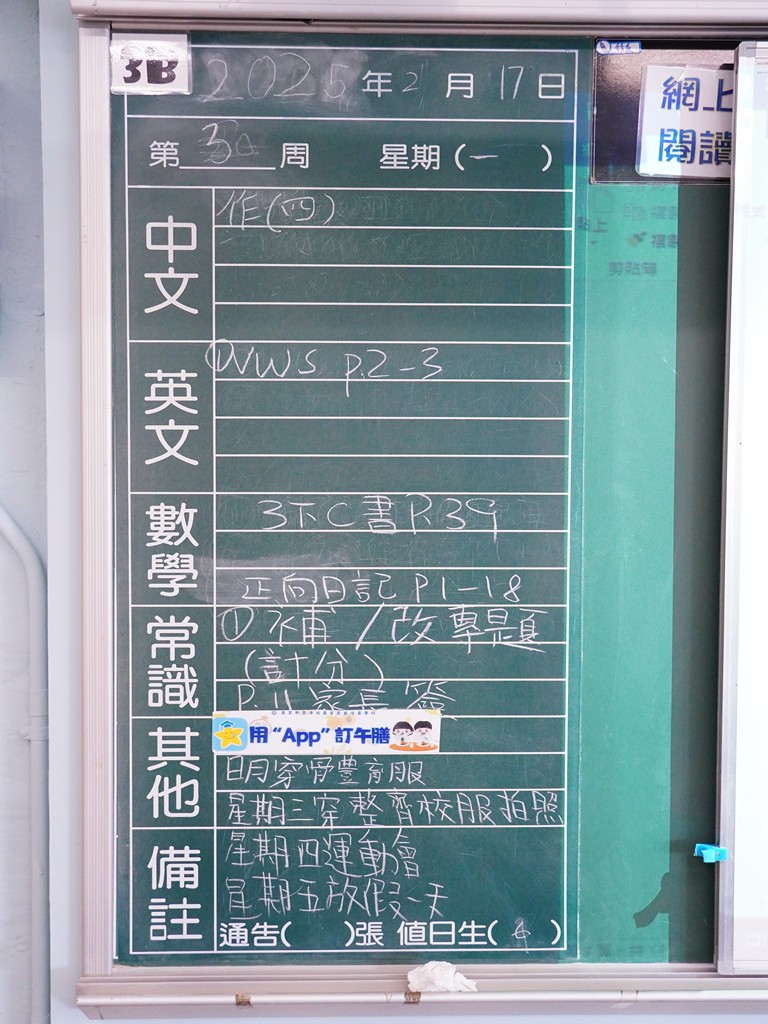 3B
2025年2月17日
第 3 周 星期(一)
網上
閱讀
中文
作(四)
英文
①VWS p.2-3
數學
3下C書P.39
正向日記 P1-18
常識
①補/改專題
(計分)
P.11家長簽
其他
用“App”訂午膳
明日穿體育服
星期三穿整齊校服拍照
備註
星期四運動會
星期五放假一天
通告( )張 值日生( )